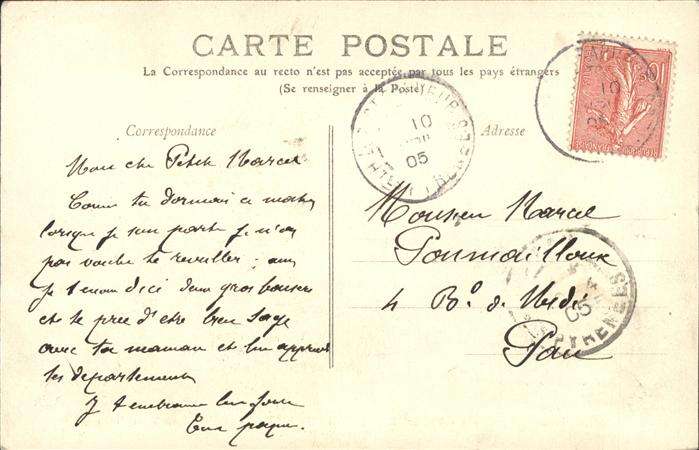 CARTE POSTALE
La Correspondance au recto n'est pas acceptée par tous les pays étrangers
(Se renseigner à la Poste)
Correspondance
Adresse
Mon che Petit Marcel
Comme tu dormais ce matin
lorsque je suis parti je n'ai
pas voulu te reveiller; aussi
je t'envoi d'ici deux gros baisers
et te prie d'etre bien sage
avec ta maman et bien apprendre
tes departements
Je t'embrasse bien fort
Ton papa.
Monsieur Marcel
Poumailloux
4 Bd. du Midi
Pau
10
05
10
05
PYRENEES